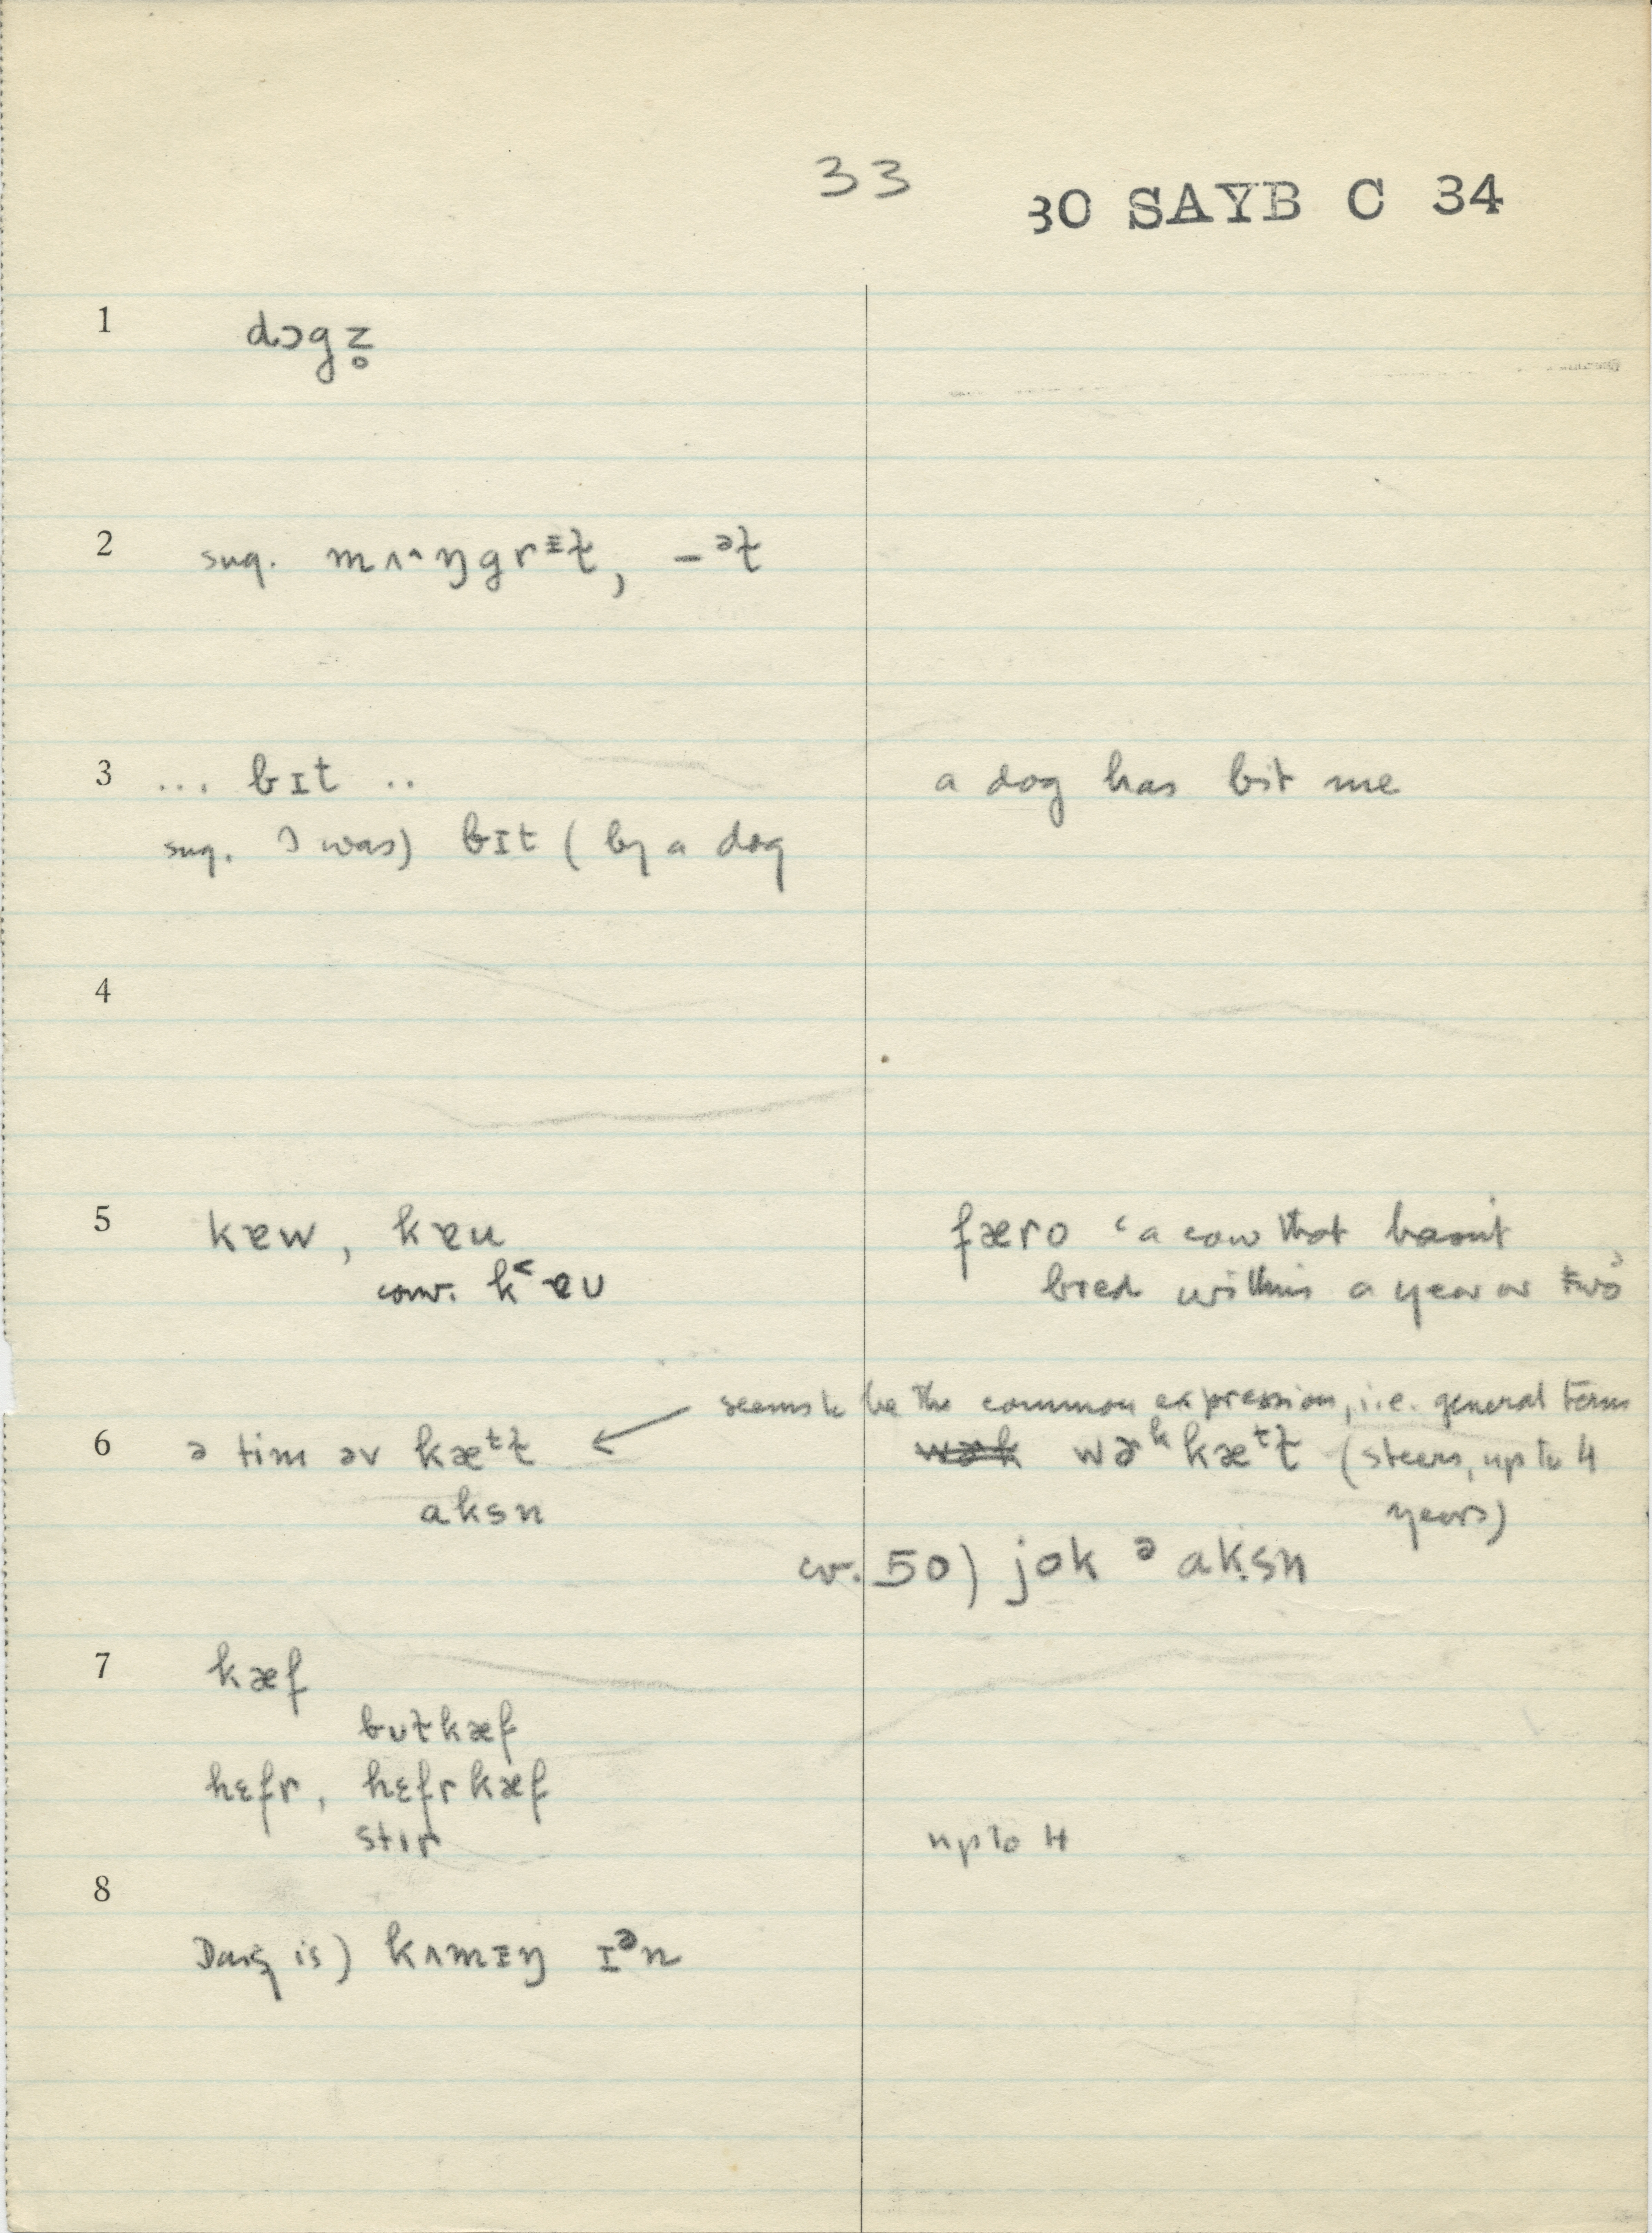 33
30 SAYB C 34
1 dɔgz̥
2 sug. mʌ^ŋgrᵻɫ, -ᵊɫ
3 ... bɪt .. a dog has bit me
sug. I was) bɪt ( by a dog
4
5 kɐw, kɐu færo ‘a cow that hasn't
conv. k˂ɐʊ bred within a year or two’
seems to be the common expression, i.e. general term
6 ə tim əv kæᵗɫ ← wɚk wɚᵏkæᵗɫ (steers, up to 4
aksn years)
cv. 50) jok ᵊ aksn
7 kæf
bʊɫkæf
hɛfr, hɛfrkæf
stɪr up to 4
8
Daisy is) kʌmᵻŋ ɪᵊn